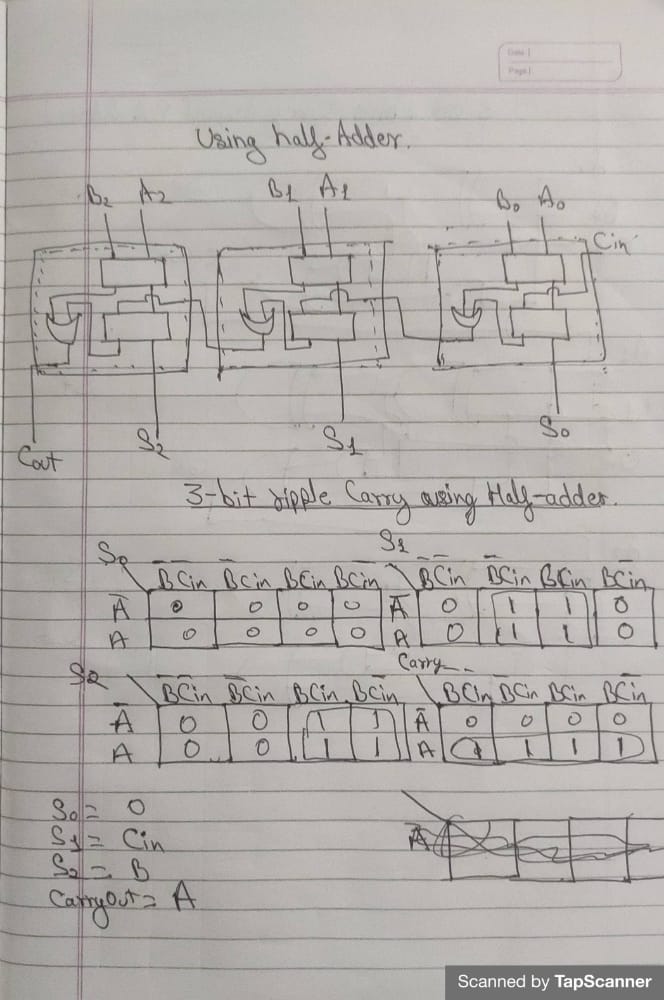 Date |
Page |
Using half-Adder.
B₂ A₂ B₁ A₁ B₀ A₀
Cin
Cout S₂ S₁ S₀
3-bit ripple Carry using Half-adder.
S₀ B̅C̅in B̅Cin BCin BC̅in
A̅ 0 0 0 0
A 0 0 0 0
S₁ B̅C̅in B̅Cin BCin BC̅in
A̅ 0 1 1 0
A 0 1 1 0
S₂ B̅C̅in B̅Cin BCin BC̅in
A̅ 0 0 1 1
A 0 0 1 1
Carry B̅C̅in B̅Cin BCin BC̅in
A̅ 0 0 0 0
A 1 1 1 1
S₀ = 0
S₁ = Cin
S₂ = B
Carryout = A
Scanned by TapScanner